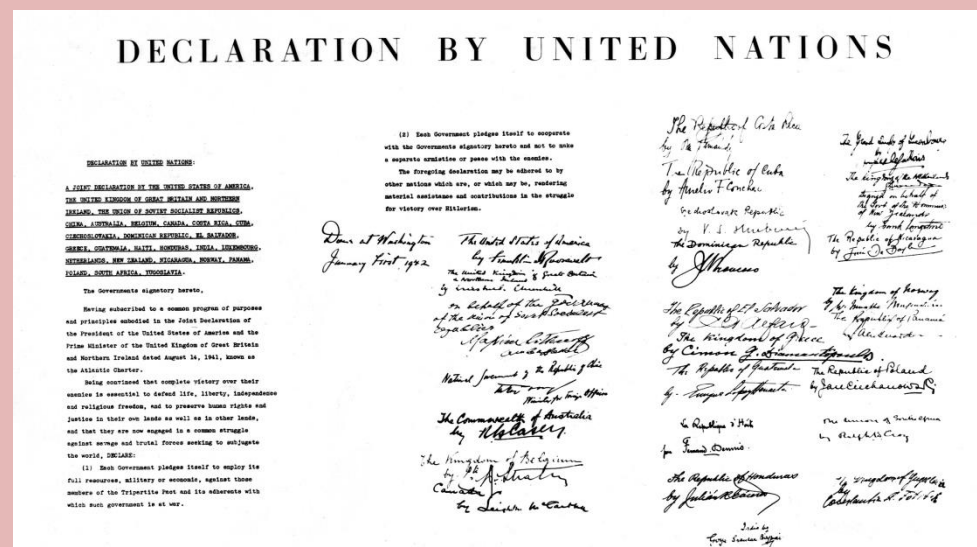 DECLARATION BY UNITED NATIONS
DECLARATION BY UNITED NATIONS:
A JOINT DECLARATION BY THE UNITED STATES OF AMERICA,
THE UNITED KINGDOM OF GREAT BRITAIN AND NORTHERN
IRELAND, THE UNION OF SOVIET SOCIALIST REPUBLICS,
CHINA, AUSTRALIA, BELGIUM, CANADA, COSTA RICA, CUBA,
CZECHOSLOVAKIA, DOMINICAN REPUBLIC, EL SALVADOR,
GREECE, GUATEMALA, HAITI, HONDURAS, INDIA, LUXEMBOURG,
NETHERLANDS, NEW ZEALAND, NICARAGUA, NORWAY, PANAMA,
POLAND, SOUTH AFRICA, YUGOSLAVIA.
The Governments signatory hereto,
Having subscribed to a common program of purposes
and principles embodied in the Joint Declaration of
the President of the United States of America and the
Prime Minister of the United Kingdom of Great Britain
and Northern Ireland dated August 14, 1941, known as
the Atlantic Charter.
Being convinced that complete victory over their
enemies is essential to defend life, liberty, independence
and religious freedom, and to preserve human rights and
justice in their own lands as well as in other lands,
and that they are now engaged in a common struggle
against savage and brutal forces seeking to subjugate
the world, DECLARE:
(1) Each Government pledges itself to employ its
full resources, military or economic, against those
members of the Tripartite Pact and its adherents with
which such government is at war.
(2) Each Government pledges itself to cooperate
with the Governments signatory hereto and not to make
a separate armistice or peace with the enemies.
The foregoing declaration may be adhered to by
other nations which are, or which may be, rendering
material assistance and contributions in the struggle
for victory over Hitlerism.
Done at Washington
January First, 1942
The United States of America
by Franklin D Roosevelt
The United Kingdom of Great Britain
& Northern Ireland
by Churchill
on behalf of the Government
of the Union of Soviet Socialist
Republics
Maxim Litvinoff
Ambassador
National Government of the Republic of China
Minister for Foreign Affairs
The Commonwealth of Australia
by R G Casey
The Kingdom of Belgium
by
Canada
by Leighton McCarthy
The Republic of Costa Rica
by
The Republic of Cuba
by Aurelio F Concheso
Czechoslovak Republic
by V. S. Hurban
The Dominican Republic
by
The Republic of El Salvador
by
The Kingdom of Greece
by Cimon G. Diamantopoulos
The Republic of Guatemala
by
La Republique d'Haiti
par Fernand Dennis
The Republic of Honduras
by Julián R Cáceres
India by
The Grand Duchy of Luxembourg
by
The Kingdom of the Netherlands
Signed on behalf of
the Govt of the Dominion
of New Zealand
by Frank Langstone
The Republic of Nicaragua
by
The Kingdom of Norway
by
The Republic of Panama
by
The Republic of Poland
by Jan Ciechanowski
The Union of South Africa
by Ralph W Close
The Kingdom of Yugoslavia
by